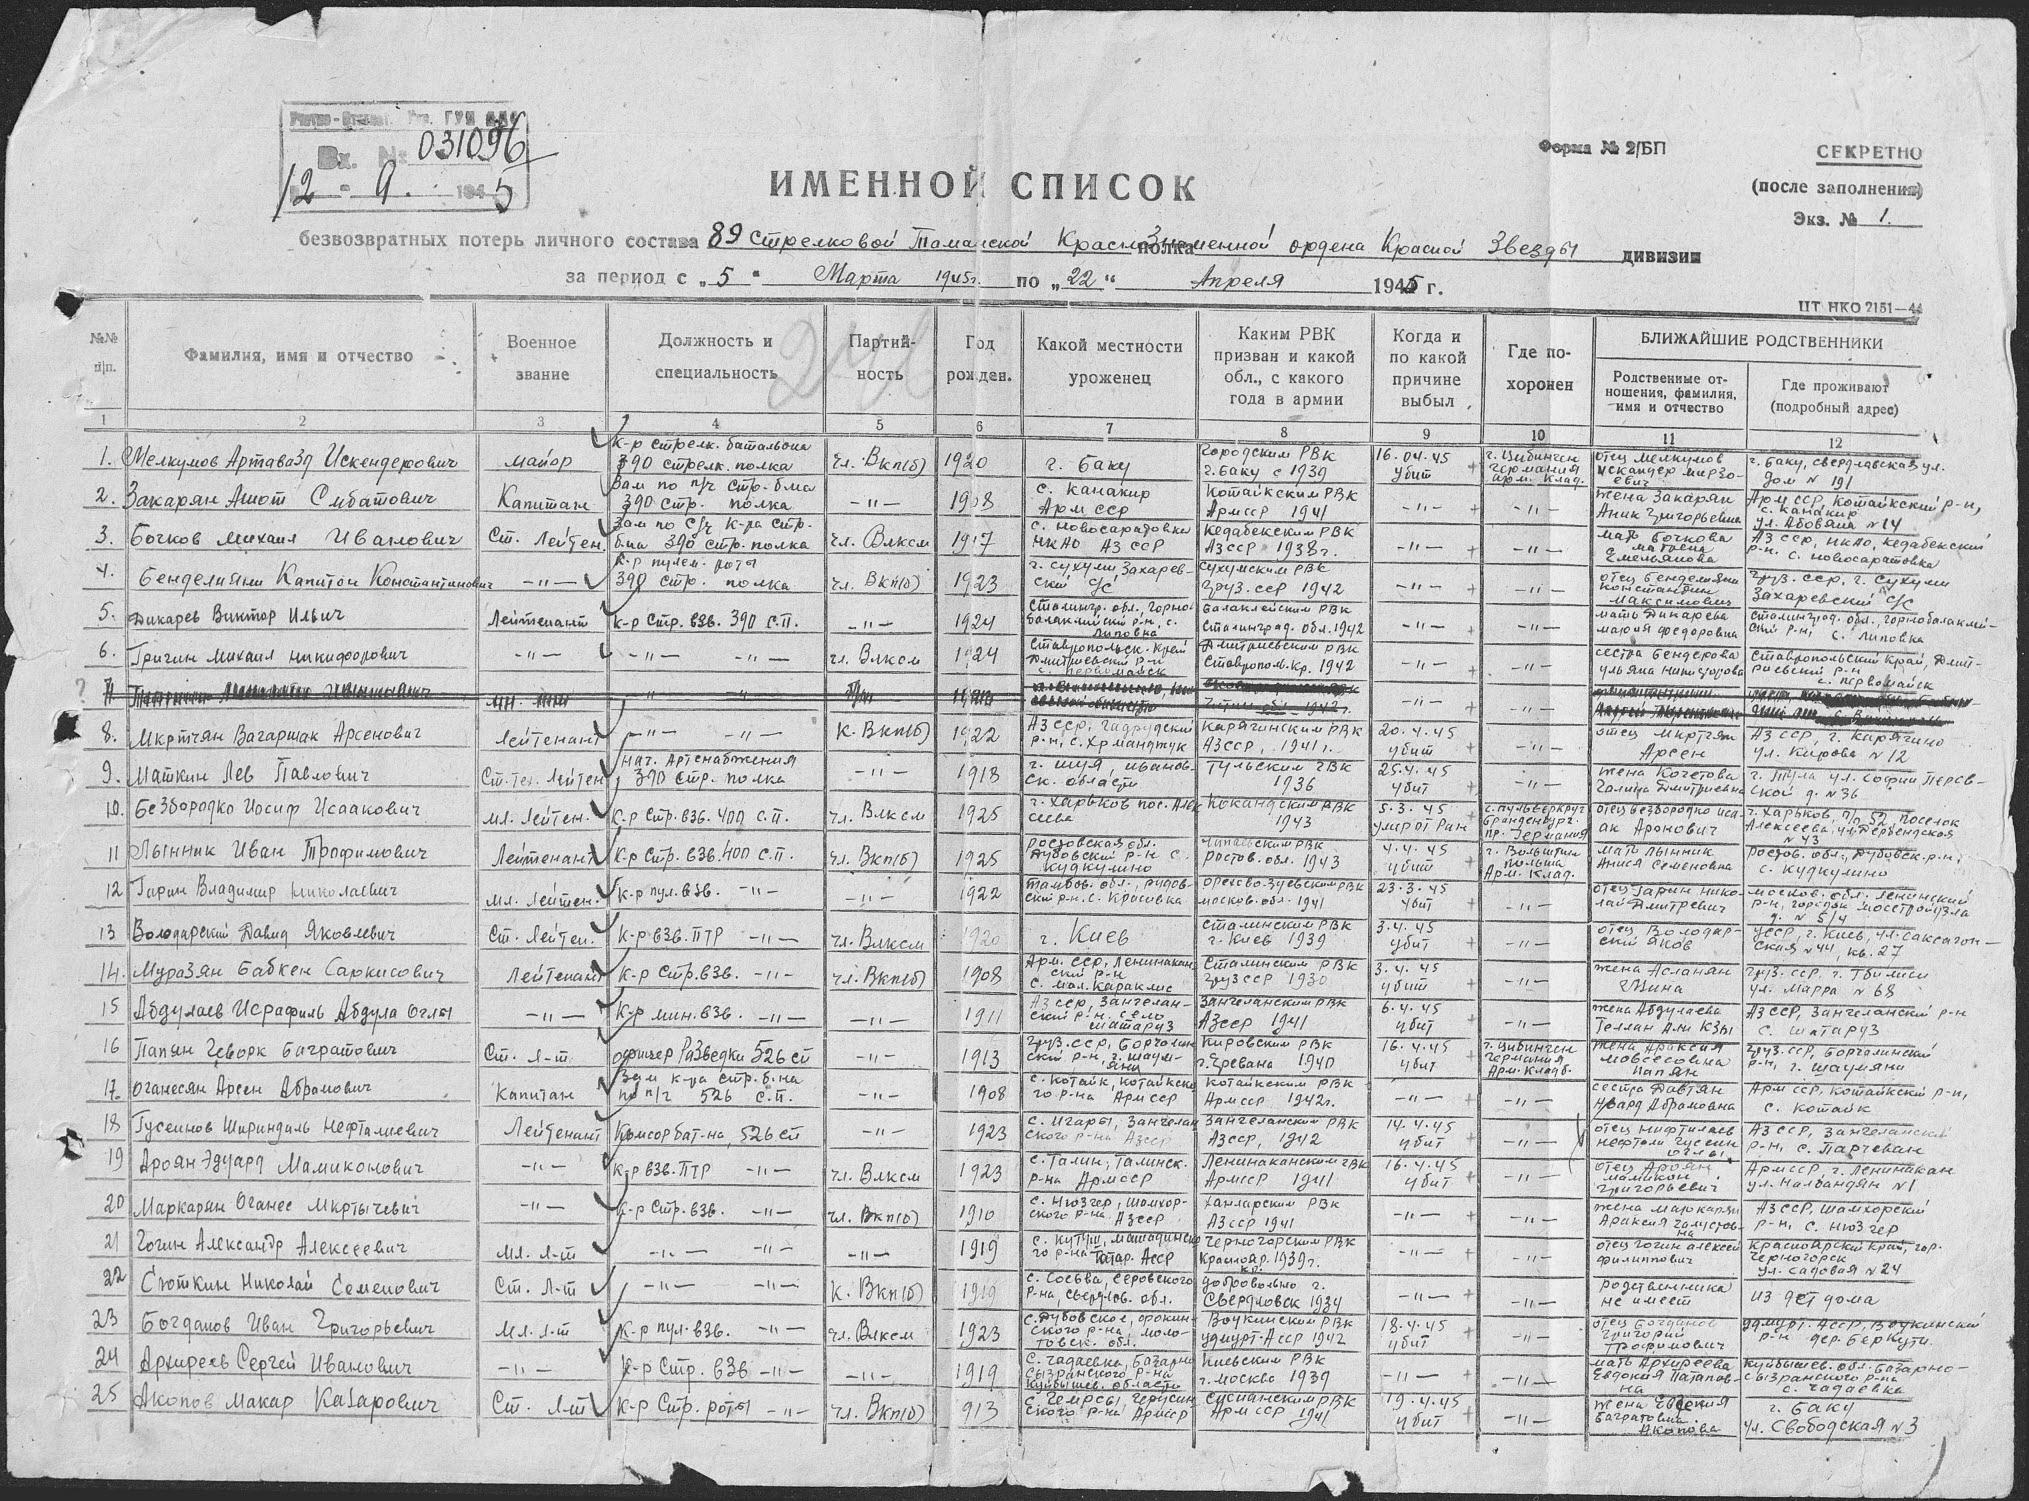 Вх. № 031096
12 - 9 1945
Форма № 2/БП
СЕКРЕТНО
(после заполнения)
Экз. № 1.
ИМЕННОЙ СПИСОК
безвозвратных потерь личного состава 89 Стрелковой Таманской Краснознаменной ордена Красной Звезды полка дивизии
за период с „5" Марта 1945г. по „22" Апреля 1945 г.
ЦТ НКО 2151—44
246
№№ п/п. | Фамилия, имя и отчество | Военное звание | Должность и специальность | Партийность | Год рожден. | Какой местности уроженец | Каким РВК призван и какой обл., с какого года в армии | Когда и по какой причине выбыл | Где похоронен | БЛИЖАЙШИЕ РОДСТВЕННИКИ | Родственные отношения, фамилия, имя и отчество | Где проживают (подробный адрес)
1 2 3 4 5 6 7 8 9 10 11 12
1. Мелкумов Артавазд Искендерович | майор | К-р стрелк. батальона 390 стрелк. полка | чл. ВКП(б) | 1920 | г. Баку | Городским РВК г. Баку с 1939 | 16.04.45 убит | г. Цибинген Германия арм. клад. | отец Мелкумов Искандер Мирзоевич | г. Баку, Свердловская ул. дом № 191
2. Закарян Ашот Смбатович | Капитан | Зам по п/ч стр. б-на 390 стр. полка | -"- | 1908 | с. Канакир Арм ССР | Котайкским РВК Арм ССР 1941 | -"- | -"- | жена Закарян Аник Григорьевна | Арм ССР, Котайкский р-н, с. Канакир ул. Абовяна № 14
3. Бочков Михаил Иванович | Ст. Лейтен. | Зам по с/ч к-ра стр. б-на 390 стр. полка | чл. Влксм | 1917 | с. Новосаратовка НКАО АЗ ССР | Кедабекским РВК АЗ ССР 1938г. | -"- | -"- | мать Бочкова Матрена Емельянова | АЗ ССР, НКАО, Кедабекский р-н, с. Новосаратовка
4. Бенделиани Капитон Константинович | -"- | К-р пулем. роты 390 стр. полка | чл. ВКП(б) | 1923 | г. Сухуми Захаревский с/с | Сухумским РВК Груз. ССР 1942 | -"- | -"- | отец Бенделиани Константин Максимович | Груз. ССР, г. Сухуми Захаревский с/с
5. Дикарев Виктор Ильич | Лейтенант | К-р Стр. взв. 390 с.п. | -"- | 1924 | Сталингр. обл., Горнобалаклейский р-н, с. Липовка | Балаклейским РВК Сталинград. обл. 1942 | -"- | -"- | мать Дикарева Мария Федоровна | Сталинград. обл., Горнобалаклейский р-н, с. Липовка
6. Григин Михаил Никифорович | -"- | -"- -"- | чл. Влксм | 1924 | Ставропольск. край Дмитриевский р-н с. Первомайск | Дмитриевским РВК Ставрополь. кр. 1942 | -"- | -"- | сестра Бендерова Ульяна Никифорова | Ставропольский край, Дмитриевский р-н с. Первомайск
? 7.
8. Мкртчян Вагаршак Арсенович | Лейтенант | -"- -"- | К. ВКП(б) | 1922 | АЗ ССР, Гадрудский р-н, с. Хрманджук | Карягинским РВК АЗ ССР, 1941 г. | 20.4.45 убит | -"- | отец Мкртчян Арсен | АЗ ССР, г. Карягино ул. Кирова № 12
9. Маткин Лев Павлович | Ст. тех. Лейтен | Нач. Артснабжения 390 стр. полка | -"- | 1913 | г. Шуя, Ивановск. области | Тульским ГВК 1936 | 25.4.45 убит | -"- | жена Кочетова Галина Дмитриевна | г. Тула ул. Софии Перовской д. № 36
10. Безбородко Иосиф Исаакович | Мл. Лейтен. | К-р Стр. взв. 400 с.п. | чл. Влксм | 1925 | г. Харьков пос. Алексеева | Кокандским РВК 1943 | 5.3.45 умер от ран | г. Пульверкруг Бранденбург. пр. Германия | отец Безбородко Исаак Аронович | г. Харьков, п/о 52, поселок Алексеева, ул. Дербендская № 43
11 Лынник Иван Трофимович | Лейтенант | К-р Стр. взв. 400 с.п. | чл. ВКП(б) | 1925 | Ростовская обл. Дубовский р-н с. Кудкулино | Чапаевским РВК Ростов. обл. 1943 | 4.4.45 убит | г. Вольштин Польша Арм. клад. | мать Лынник Анися Семеновна | Ростов. обл., Дубовск. р-н, с. Кудкулино
12 Гарин Владимир Николаевич | Мл. Лейтен. | К-р пул. взв. -"- | -"- | 1922 | Тамбов. обл., Рудовский р-н. с. Красовка | Орехово-Зуевским РВК Москов. обл. 1941 | 23.3.45 убит | -"- | отец Гарин Николай Дмитревич | Москов. обл. Ленинский р-н, городок Мосстройузла д. № 5/4
13 Володарский Давид Яковлевич | Ст. Лейтен. | К-р взв. ПТР -"- | чл. Влксм | 1920 | г. Киев | Сталинским РВК г. Киев 1939 | 3.4.45 убит | -"- | отец Володарский Яков | УССР, г. Киев, ул. Саксагонская № 44, кв. 27
14. Муразян Бабкен Саркисович | Лейтенант | К-р Стр. взв. -"- | чл. ВКП(б) | 1908 | Арм. ССР, Ленинаканский р-н с. Мал. Караклис | Сталинским РВК Груз ССР 1930 | 3.4.45 убит | -"- | жена Асланян | Груз. ССР, г. Тбилиси ул. Марра № 68
15 Абдулаев Исрафиль Абдула Оглы | -"- | К-р мин. взв. -"- | -"- | 1911 | АЗ ССР, Зангеланский р-н. село Шатаруз | Зангеланским РВК АЗ ССР 1941 | 6.4.45 убит | -"- | жена Абдулаева Теллан Али Кзы | АЗ ССР, Зангеланский р-н с. Шатаруз
16 Папян Геворк Багратович | Ст. Л-т. | офицер Разведки 526 сп | -"- | 1913 | Груз. ССР, Борчалинский р-н, г. Шаумяни | Кировским РВК г. Еревана 1940 | 16.4.45 убит | г. Цибинген Германия Арм. кладб. | жена Араксия Мовсесовна Папян | Груз. ССР, Борчалинский р-н, г. Шаумяни
17. Оганесян Арсен Абрамович | Капитан | Зам к-ра стр. б-на по п/ч 526 с.п. | -"- | 1908 | с. Котайк, Котайкского р-на Арм ССР | Котайкским РВК Арм ССР 1942г. | -"- | -"- | сестра Давтян Нвард Абрамовна | Арм ССР, Котайкский р-н, с. Котайк
18 Гусеинов Шириндаль Нефталиевич | Лейтенант | Комсорг бат-на, 526 сп | -"- | 1923 | с. Игары, Зангеланского р-на АзССР | Зангеланским РВК АЗ ССР, 1942 | 14.4.45 убит | -"- | отец Нифтилаев Нефтали Гусеин Оглы | АЗ ССР, Зангеланский р-н, с. Парчеван
19 Ароян Эдуард Мамиконович | -"- | К-р взв. ПТР -"- | чл. Влксм | 1923 | с. Талин, Талинск. р-на АрмССР | Ленинаканским ГВК АрмССР 1941 | 16.4.45 убит | -"- | отец Ароян Мамикон Григорьевич | Арм ССР, г. Ленинакан ул. Налбандян № 1
20 Маркарян Оганес Мкртычевич | -"- | К-р Стр. взв. -"- | чл. ВКП(б) | 1910 | с. Нюзгер, Шамхорского р-на АЗ ССР | Ханларским РВК АЗ ССР 1941 | -"- | -"- | жена Маркарян Араксия Галустовна | АЗ ССР, Шамхорский р-н, с. Нюзгер
21 Гогин Александр Алексеевич | Мл. Л-т | -"- -"- | -"- | 1919 | Татар. АССР | Черногорским РВК Краснояр. кр. 1939г. | -"- | -"- | отец Гогин Алексей Филиппович | Красноярский край, гор. Черногорск ул. Садовая № 24
22 Сюткин Николай Семенович | Ст. Л-т | -"- -"- | К. ВКП(б) | 1919 | с. Сосьва, Серовского р-на, Свердлов. обл. | Добровольно г. Свердловск 1934 | -"- | -"- | родственника не имеет | из дет дома
23 Богданов Иван Григорьевич | Мл. Л-т | К-р пул. взв. -"- | чл. Влксм | 1923 | с. Дубовское, Молотовск. обл. | Воткинским РВК Удмурт. АССР 1942 | 18.4.45 убит | -"- | отец Богданов Григорий Трофимович | Удмурт. АССР, Воткинский р-н дер. Беркути
24 Архиреев Сергей Иванович | -"- | К-р Стр. взв -"- | -"- | 1919 | с. Чадаевка, Базарно Сызранского р-на Куйбышев. области | Киевским РВК г. Москва 1939 | -"- | -"- | мать Архиреева Евдокия Патаповна | Куйбышев. обл. Базарно-Сызранского р-на с. Чадаевка
25 Акопов Макар Казарович | Ст. Л-т | К-р Стр. роты -"- | чл. ВКП(б) | 1913 | р-на, Арм ССР | Сисианским РВК Арм ССР 1941 | 19.4.45 убит | -"- | жена Евгения Багратовна Акопова | г. Баку ул. Свободская № 3